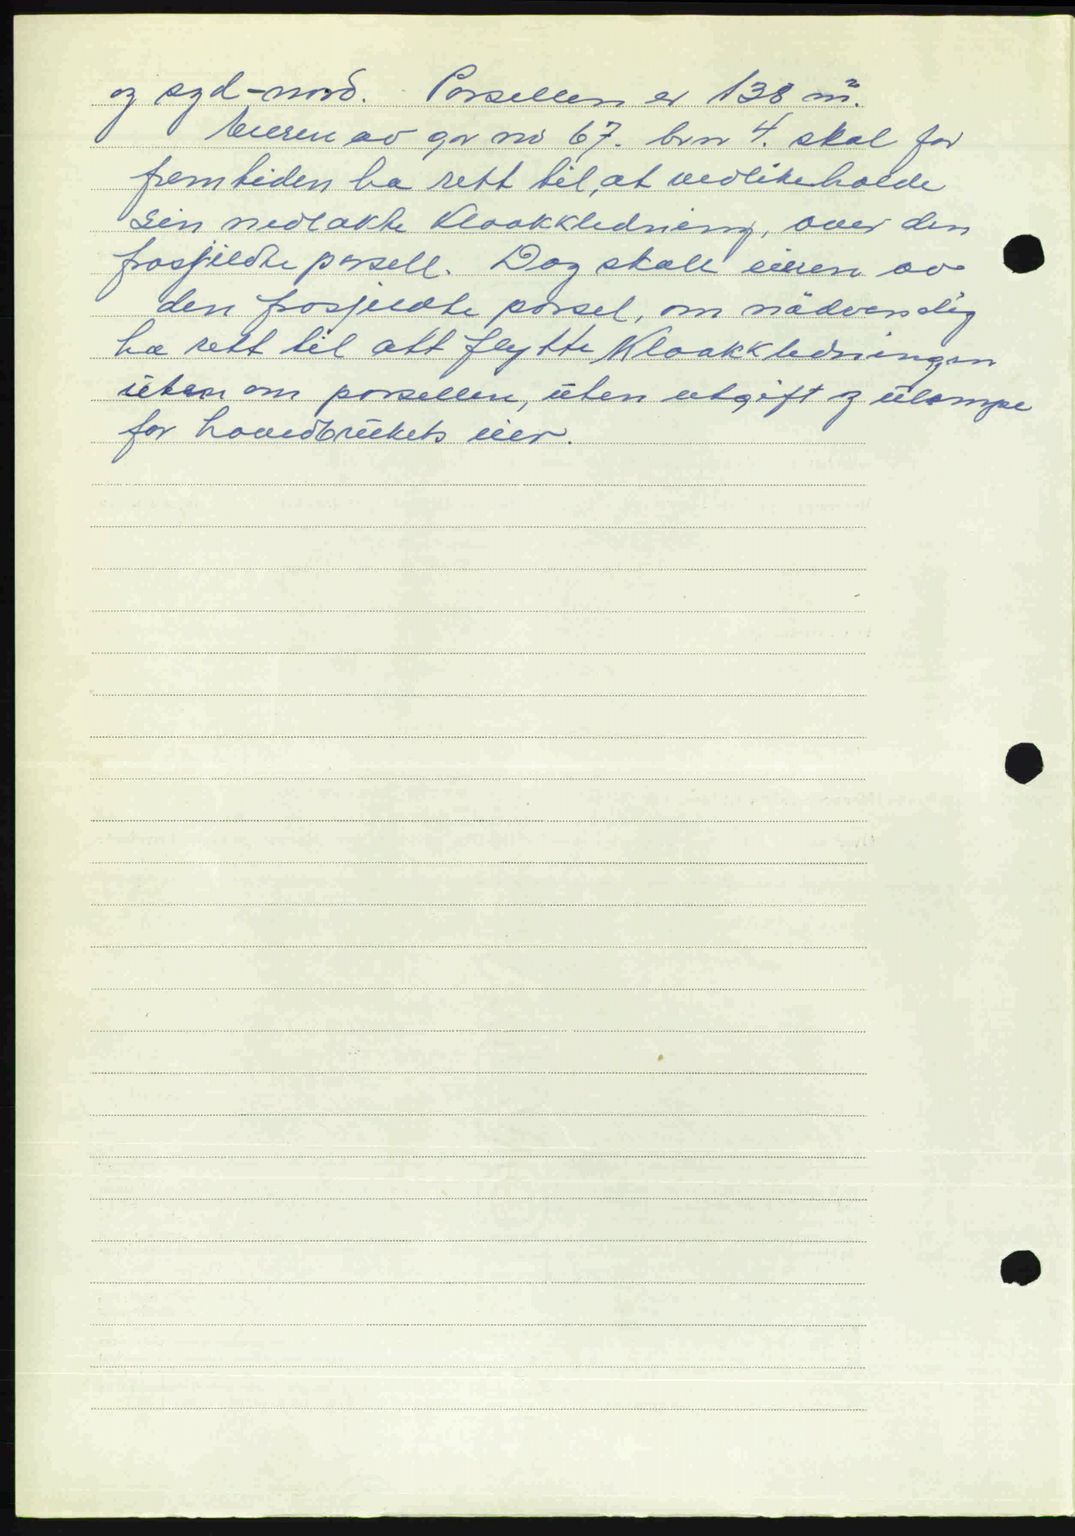 og syd-nord. Parsellen er 138 m².
Eieren av gr no 67. brn 4. skal for
fremtiden ha rett til, at vedlikeholde
sin nedlakte Kloakkledning, over den
frasjildte parsell. Dog skall eieren av
den frasjildte parsel, om nödvendig
ha rett til att flytte Kloakkledningen
uten om parsellen, uten utgift og ulempe
for hovedbrukets eier.